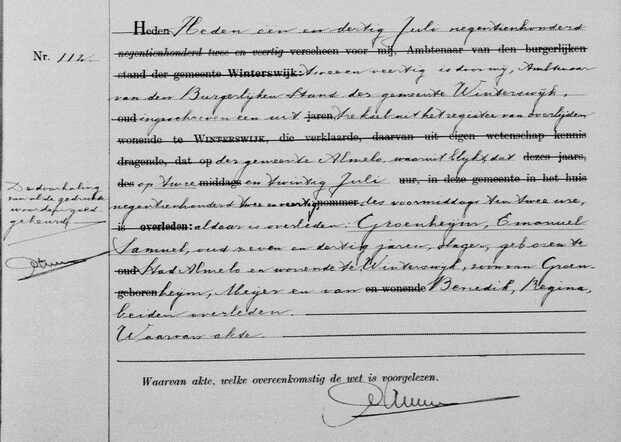 Heden Heden een en dertig Juli negentienhonderd
negentienhonderd twee en veertig verscheen voor mij, Ambtenaar van den burgerlijken
Nr. 112
stand der gemeente Winterswijk: twee en veertig is door mij, Ambtenaar
van den Burgerlijken Stand der gemeente Winterswijk,
oud ingeschreven een uit jaren, treksel uit het register van overlijden
wonende te Winterswijk, die verklaarde, daarvan uit eigen wetenschap kennis
dragende, dat op der gemeente Almelo, waaruit blijkt, dat dezes jaars,
des op twee middags en twintig Juli uur, in deze gemeente in het huis
negentienhonderd twee en veertig nommer des voormiddags ten twee ure,
is overleden: aldaar is overleden: Groenheijm, Emanuel
Samuel, oud zeven en dertig jaren, slager, geboren te
oud Stad Almelo en wonende te Winterswijk, zoon van Groen-
geboren heijm, Meijer en van en wonende Benedik, Regina,
beiden overleden.
Waarvan akte.
Waarvan akte, welke overeenkomstig de wet is voorgelezen.
De doorhaling
van al de gedrukte
woorden goed-
gekeurd